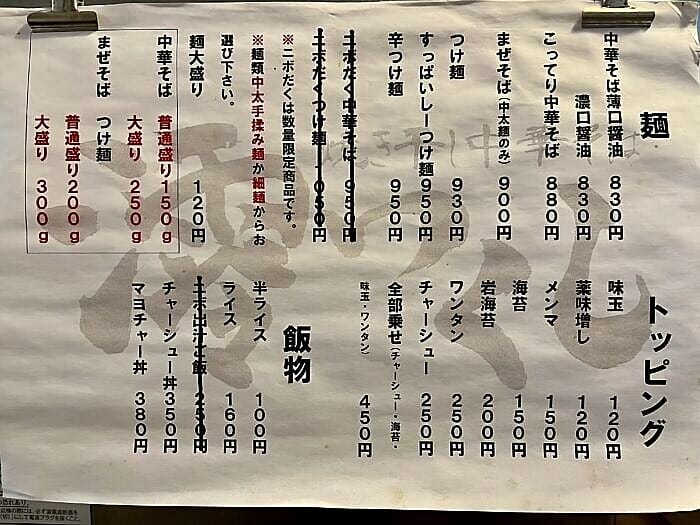 麺
中華そば薄口醤油 830円
濃口醤油 830円
こってり中華そば 880円
まぜそば(中太麺のみ) 900円
つけ麺 930円
すっぱいしーつけ麺 950円
辛つけ麺 950円
ニボだく中華そば 950円
ニボだくつけ麺 1050円
※ニボだくは数量限定商品です。
※麺類中太手揉み麺か細麺からお
選び下さい。
麺大盛り 120円
中華そば 普通盛り150g
大盛り 250g
まぜそば つけ麺
普通盛り200g
大盛り 300g
トッピング
味玉 120円
薬味増し 120円
メンマ 150円
海苔 150円
岩海苔 200円
ワンタン 250円
チャーシュー 250円
全部乗せ(チャーシュー・海苔・
味玉・ワンタン) 450円
飯物
半ライス 100円
ライス 160円
ニボ出汁ご飯 250円
チャーシュー丼 350円
マヨチャー丼 380円
焼き干し中華そば